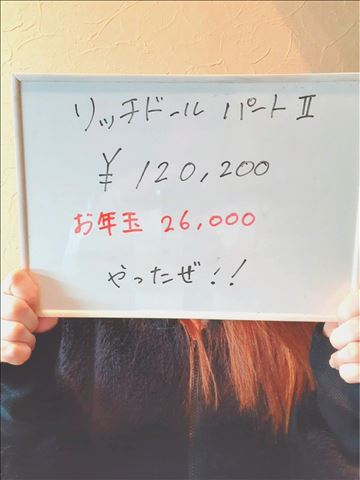 リッチドール パートⅡ
¥120,200
お年玉 26,000
やったぜ!!